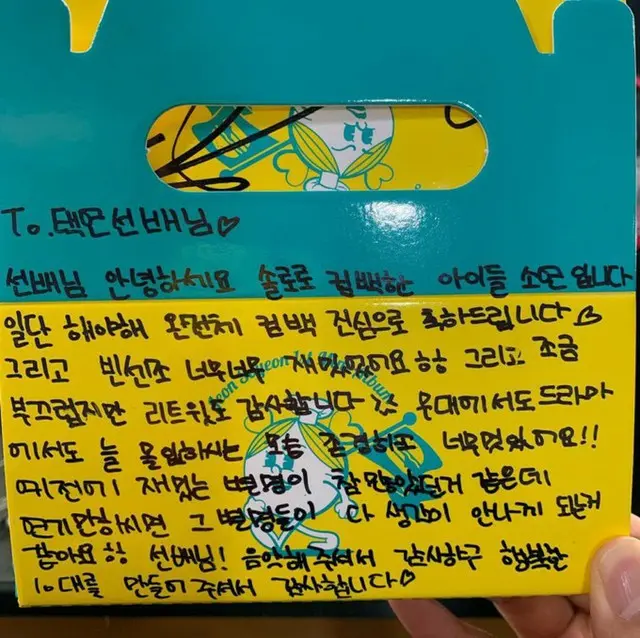 To. 택운선배님♡
선배님 안녕하세요 솔로로 컴백한 아이들 소연 입니다
일단 해야해 완전체 컴백 진심으로 축하드립니다♡
그리고 빈센조 너무너무 재밌었어요ㅎㅎ 그리고 조금
부끄럽지만 리트윗도 감사합니다 무대에서도 드라마
에서도 늘 몰입하시는 모습 존경하고 너무멋있어요!!
예전에 재밌는 별명이 참 많았던거 같은데
연기만하시면 그 별명들이 다 생각이 안나게 되는거
같아요ㅎㅎ 선배님! 음악해주셔서 감사하구 행복한
10대를 만들어주셔서 감사합니다♡
Jeon Soyeon 1st Mini Album